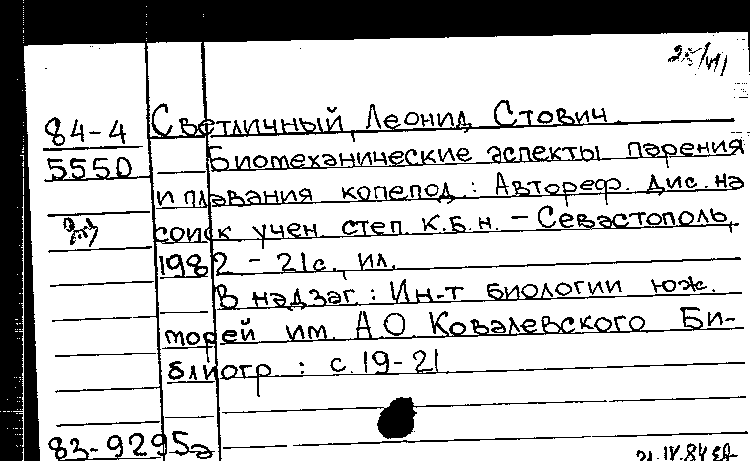 25/VII
84-4 Светличный, Леонид Стович.
5550 Биомеханические аспекты парения
и плавания копепод. : Автореф. дис. на
соиск. учен. степ. к.б.н. – Севастополь,
1982 – 21с., ил.
В надзаг. : Ин-т биологии юж.
морей им. А.О. Ковалевского. Би-
блиогр : с. 19-21
83-9295а